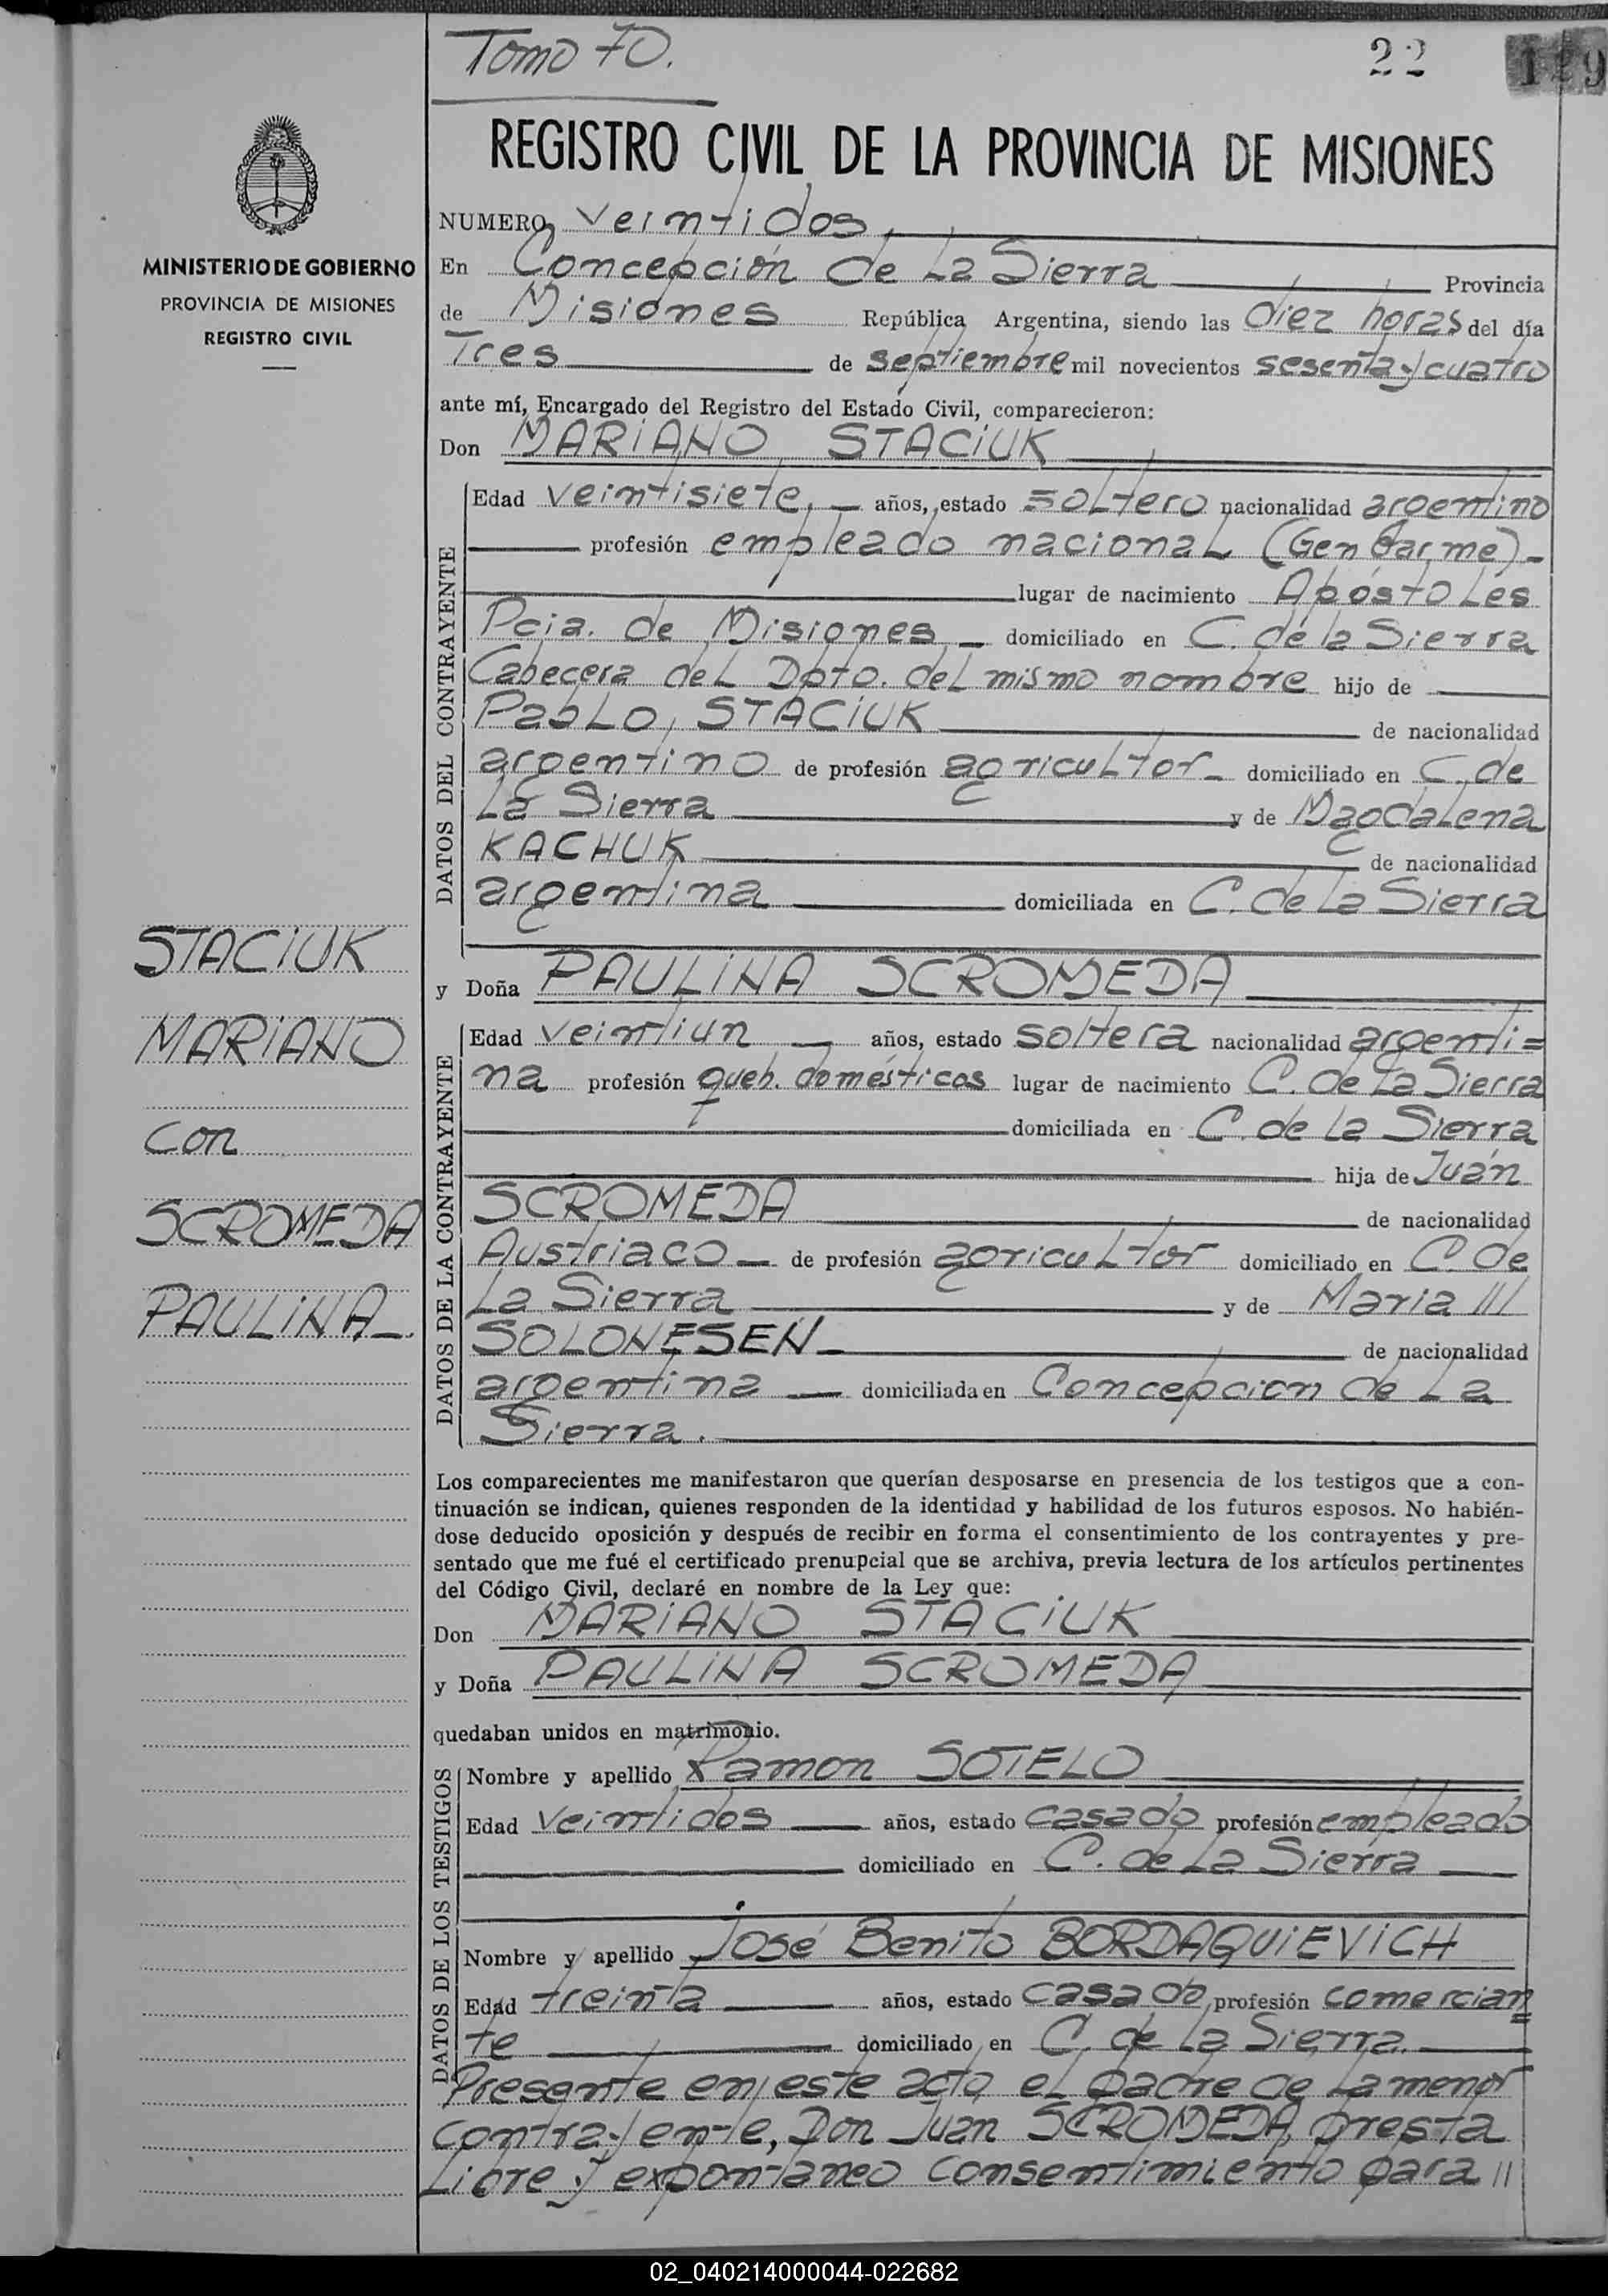 Tomo 70.
22
129
REGISTRO CIVIL DE LA PROVINCIA DE MISIONES
MINISTERIO DE GOBIERNO
PROVINCIA DE MISIONES
REGISTRO CIVIL
NUMERO veintidos
En Concepción de La Sierra Provincia
de Misiones República Argentina, siendo las diez horas del día
Tres de septiembre mil novecientos sesenta y cuatro
ante mí, Encargado del Registro del Estado Civil, comparecieron:
Don MARIANO STACIUK
DATOS DEL CONTRAYENTE
Edad veintisiete, años, estado soltero nacionalidad argentino
profesión empleado nacional (Gendarme)
lugar de nacimiento Apóstoles
Pcia. de Misiones domiciliado en C. de la Sierra
Cabecera del Dpto. del mismo nombre hijo de
Pablo, STACIUK de nacionalidad
argentino de profesión agricultor domiciliado en C. de
La Sierra y de Magdalena
KACHUK de nacionalidad
argentina domiciliada en C. de La Sierra
STACIUK
MARIANO
con
SCROMEDA
PAULINA
y Doña PAULINA SCROMEDA
DATOS DE LA CONTRAYENTE
Edad veintiun años, estado soltera nacionalidad argenti=
na profesión queh. domésticos lugar de nacimiento C. de La Sierra
domiciliada en C. de La Sierra
hija de Juán
SCROMEDA de nacionalidad
Austriaco de profesión agricultor domiciliado en C. de
La Sierra y de Maria ///
SOLONESEN de nacionalidad
argentina domiciliada en Concepcion de La
Sierra.
Los comparecientes me manifestaron que querían desposarse en presencia de los testigos que a con-
tinuación se indican, quienes responden de la identidad y habilidad de los futuros esposos. No habién-
dose deducido oposición y después de recibir en forma el consentimiento de los contrayentes y pre-
sentado que me fué el certificado prenupcial que se archiva, previa lectura de los artículos pertinentes
del Código Civil, declaré en nombre de la Ley que:
Don MARIANO STACIUK
y Doña PAULINA SCROMEDA
quedaban unidos en matrimonio.
DATOS DE LOS TESTIGOS
Nombre y apellido Ramon SOTELO
Edad veintidos años, estado casado profesión empleado
domiciliado en C. de La Sierra
Nombre y apellido José Benito BORDAQUIEVICH
Edad treinta años, estado casado, profesión comercian=
te domiciliado en C. de La Sierra.
Presente en este acto el padre de la menor
contrayente, Don Juán SCROMEDA, presta
Libre y expontáneo consentimiento para //
02_040214000044-022682